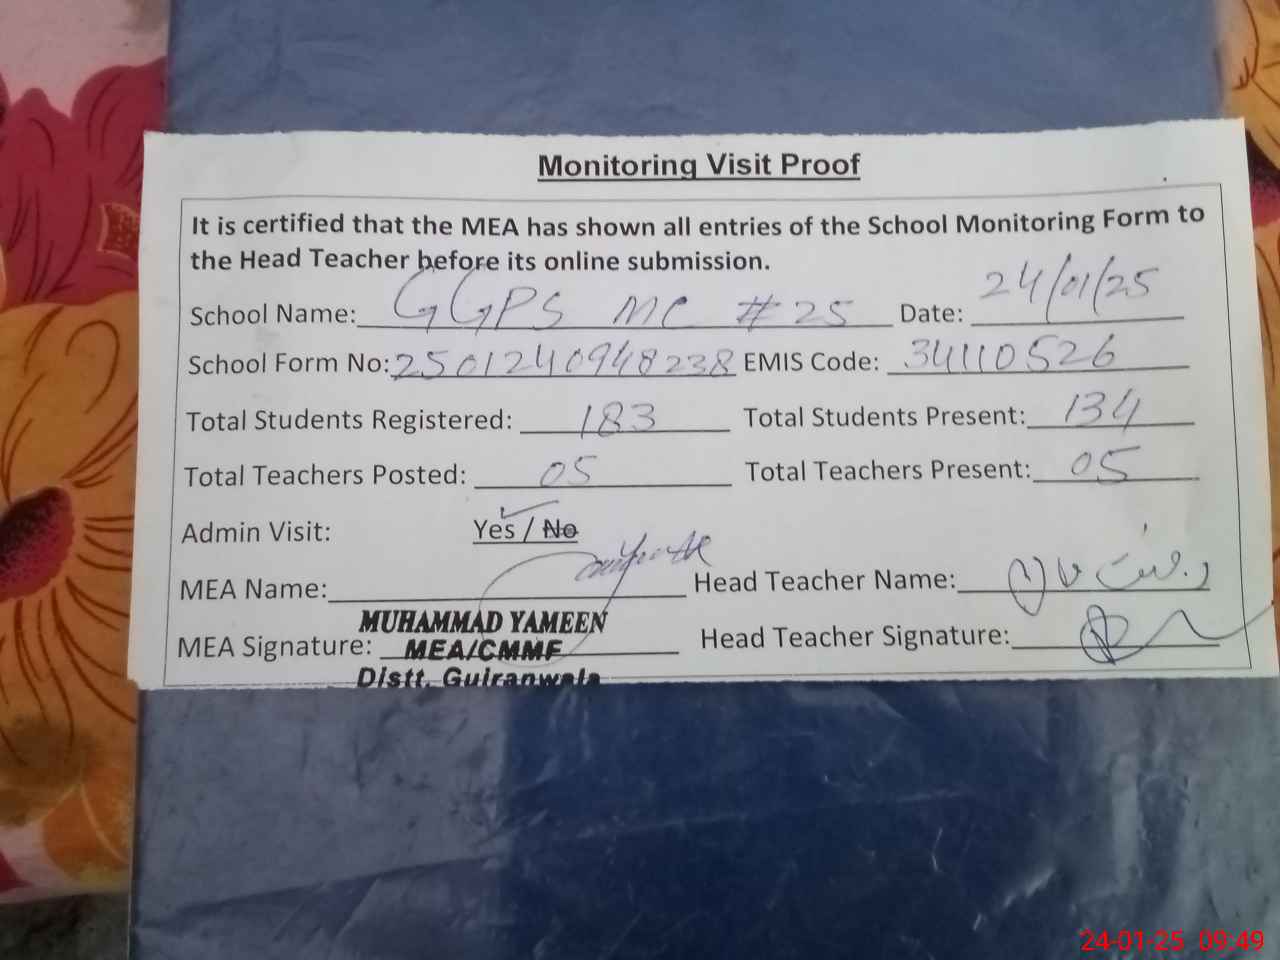 Monitoring Visit Proof
It is certified that the MEA has shown all entries of the School Monitoring Form to
the Head Teacher before its online submission.
School Name: GGPS MC #25 Date: 24/01/25
School Form No: 2501240948238 EMIS Code: 34110526
Total Students Registered: 183 Total Students Present: 134
Total Teachers Posted: 05 Total Teachers Present: 05
Admin Visit: Yes / No
MEA Name: Head Teacher Name:
MUHAMMAD YAMEEN
MEA Signature: MEA/CMMF Head Teacher Signature:
Distt. Gujranwala
24-01-25 09:49